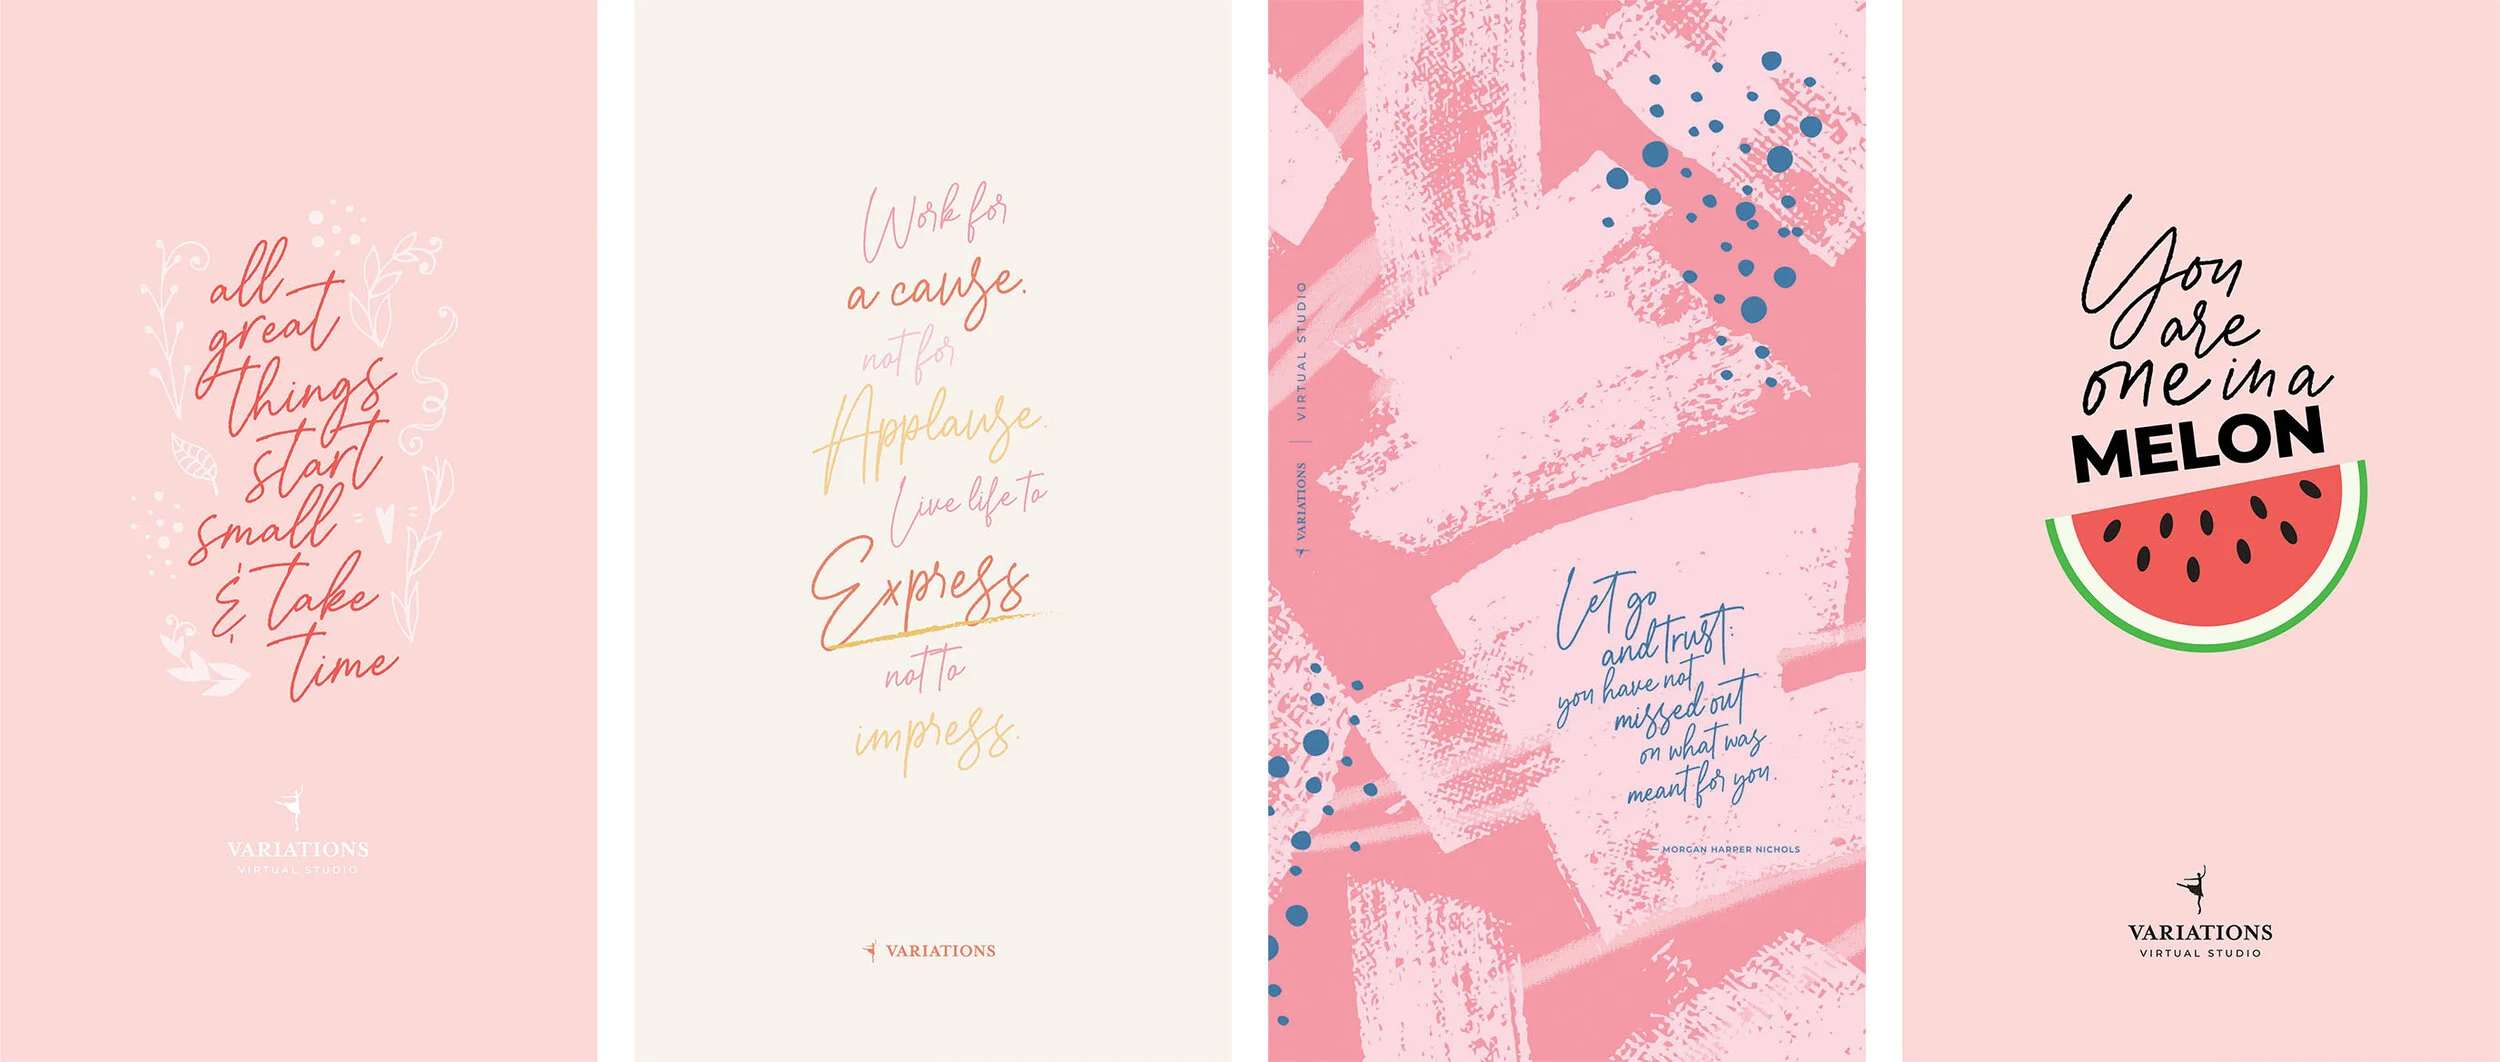 all
great
things
start
small
& take
time
VARIATIONS
VIRTUAL STUDIO
Work for
a cause.
not for
Applause.
Live life to
Express
not to
impress.
VARIATIONS
VARIATIONS | VIRTUAL STUDIO
Let go
and trust:
you have not
missed out
on what was
meant for you.
— MORGAN HARPER NICHOLS
You
are
one in a
MELON
VARIATIONS
VIRTUAL STUDIO